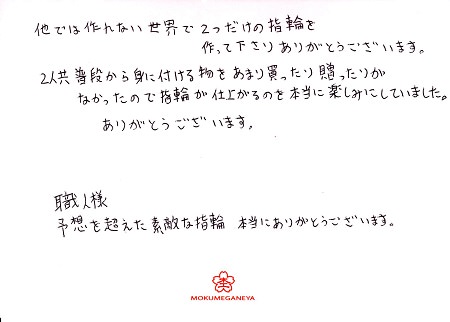 他では作れない世界で2つだけの指輪を
作って下さりありがとうございます。
2人共普段から身に付ける物をあまり買ったり贈ったりが
なかったので指輪が仕上がるのを本当に楽しみにしていました。
ありがとうございます。
職人様
予想を超えた素敵な指輪 本当にありがとうございます。
MOKUMEGANEYA